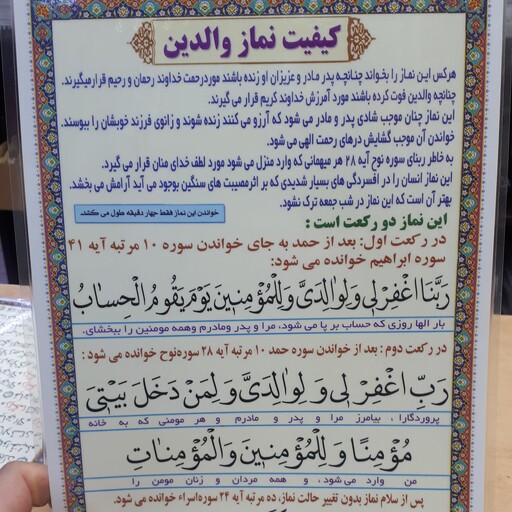 کیفیت نماز والدین
هرکس این نماز را بخواند چنانچه پدر مادر و عزیزان او زنده باشند مورد رحمت خداوند رحمان و رحیم قرار میگیرند.
چنانچه والدین فوت کرده باشند مورد آمرزش خداوند کریم قرار می گیرند.
این نماز چنان موجب شادی پدر و مادر می شود که آرزو می کنند زنده شوند و زانوی فرزند خویشان را ببوسند.
خواندن آن موجب گشایش درهای رحمت الهی می شود.
به خاطر ربنای سوره نوح آیه ۲۸ هر میهمانی که وارد منزل می شود مورد لطف خدای منان قرار می گیرد.
این نماز انسان را در افسردگی های بسیار شدیدی که بر اثر مصیبت های سنگین بوجود می آید آرامش می بخشد.
بهتر آن است که این نماز در شب جمعه ترک نشود.
خواندن این نماز فقط چهار دقیقه طول می کشد.
این نماز دو رکعت است :
در رکعت اول: بعد از حمد به جای خواندن سوره ۱۰ مرتبه آیه ۴۱
سوره ابراهیم خوانده می شود:
رَبَّنَا اغْفِرْ لی وَ لِوالِدَیَّ وَ لِلْمُؤْمِنینَ یَوْمَ یَقُومُ الْحِسابُ
بار الها روزی که حساب بر پا می شود، مرا و پدر ومادرم وهمه مومنین را ببخشای.
در رکعت دوم : بعد از خواندن سوره حمد ۱۰ مرتبه آیه ۲۸ سوره‌نوح خوانده می شود :
رَبِّ اغْفِرْ لی وَ لِوالِدَیَّ وَ لِمَنْ دَخَلَ بَیْتِیَ
پروردگارا، بیامرز مرا و پدر و مادرم و هر مومنی که به خانه
مُؤْمِنًا وَ لِلْمُؤْمِنینَ وَالْمُؤْمِناتِ
من وارد می‌شود، و همه مردان و زنان مومن را
پس از سلام نماز بدون تغییر حالت نماز، ده مرتبه آیه ۲۴ سوره‌اسراء خوانده می شود.